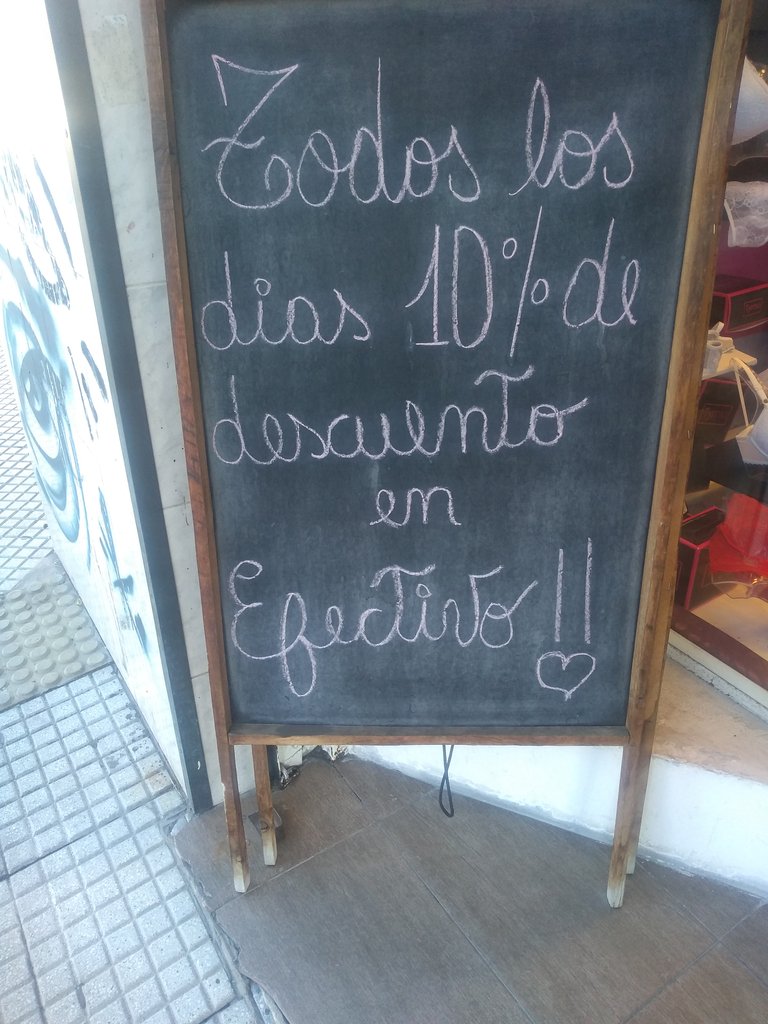 Todos los
dias 10% de
descuento
en
Efectivo!!